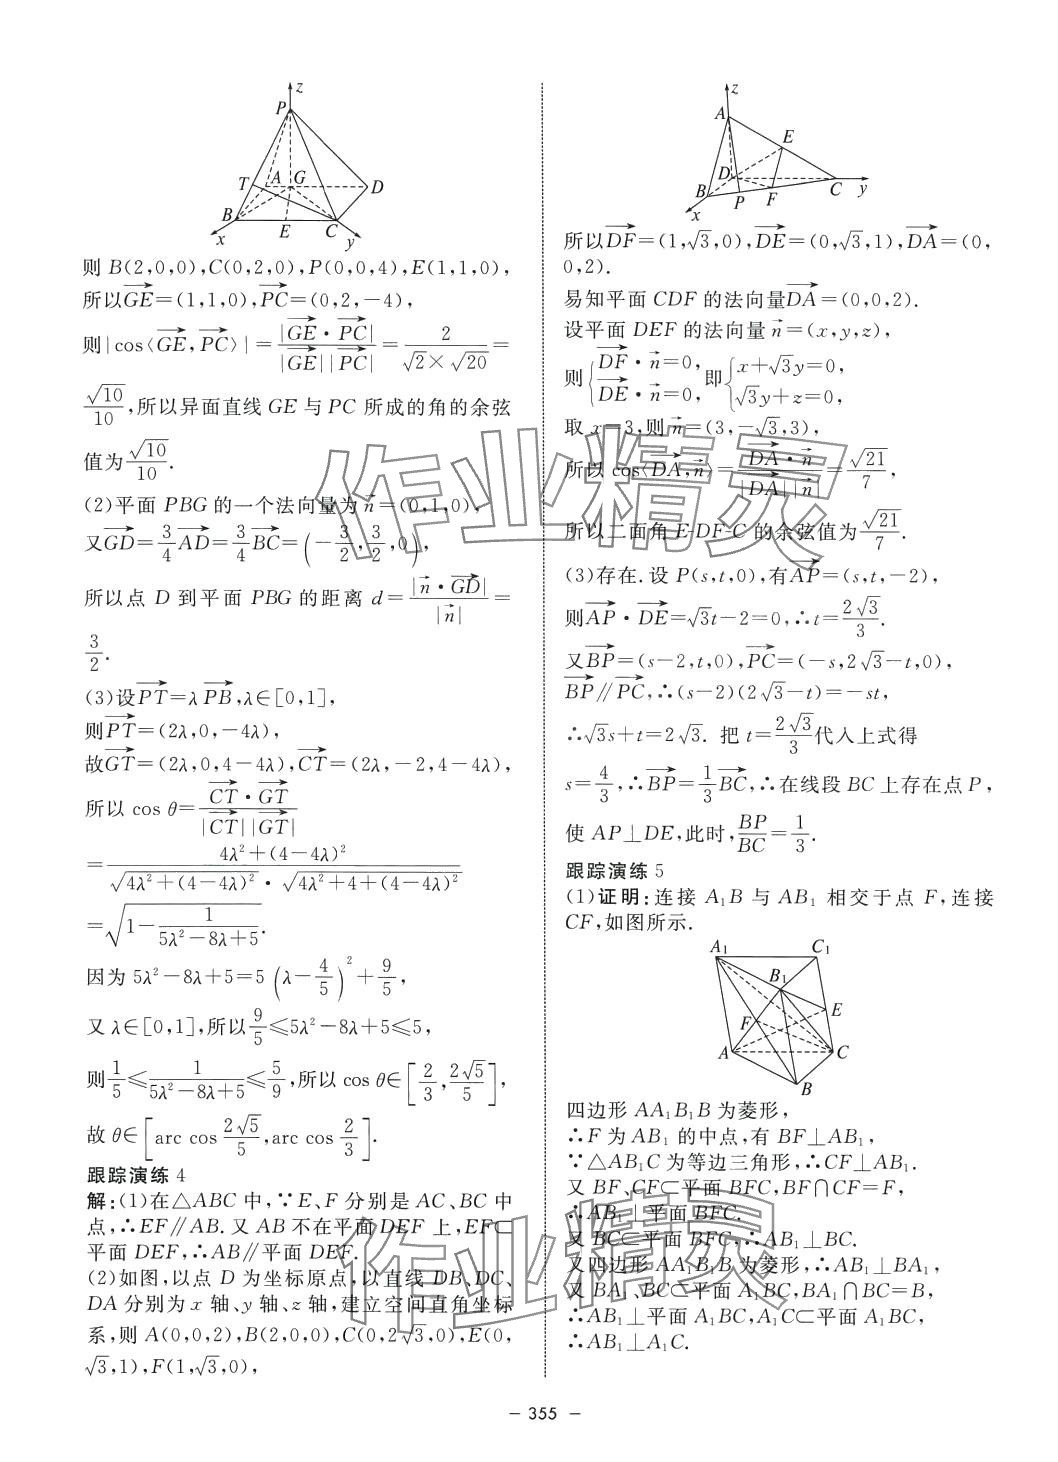 z
P
T
A
G
D
B
E
C
x
y
则 B(2,0,0),C(0,2,0),P(0,0,4),E(1,1,0),
所以$\overrightarrow{GE}$=(1,1,0),$\overrightarrow{PC}$=(0,2,-4),
则|cos⟨$\overrightarrow{GE}$,$\overrightarrow{PC}$⟩|=$\frac{|\overrightarrow{GE}·\overrightarrow{PC}|}{|\overrightarrow{GE}||\overrightarrow{PC}|}$=$\frac{2}{\sqrt{2}×\sqrt{20}}$=
$\frac{\sqrt{10}}{10}$,所以异面直线 GE 与 PC 所成的角的余弦
值为$\frac{\sqrt{10}}{10}$.
(2)平面 PBG 的一个法向量为 $\vec{n}$=(0,1,0),
又$\overrightarrow{GD}$=$\frac{3}{4}\overrightarrow{AD}$=$\frac{3}{4}\overrightarrow{BC}$=$\left(-\frac{3}{2},\frac{3}{2},0\right)$,
所以点 D 到平面 PBG 的距离 d=$\frac{|\vec{n}·\overrightarrow{GD}|}{|\vec{n}|}$=
$\frac{3}{2}$.
(3)设$\overrightarrow{PT}$=λ$\overrightarrow{PB}$,λ∈[0,1],
则$\overrightarrow{PT}$=(2λ,0,-4λ),
故$\overrightarrow{GT}$=(2λ,0,4-4λ),$\overrightarrow{CT}$=(2λ,-2,4-4λ),
所以 cos θ=$\frac{\overrightarrow{CT}·\overrightarrow{GT}}{|\overrightarrow{CT}||\overrightarrow{GT}|}$
=$\frac{4λ^2+(4-4λ)^2}{\sqrt{4λ^2+(4-4λ)^2}·\sqrt{4λ^2+4+(4-4λ)^2}}$
=$\sqrt{1-\frac{1}{5λ^2-8λ+5}}$.
因为 5λ²-8λ+5=5$\left(λ-\frac{4}{5}\right)^2$+$\frac{9}{5}$,
又 λ∈[0,1],所以$\frac{9}{5}$≤5λ²-8λ+5≤5,
则$\frac{1}{5}$≤$\frac{1}{5λ^2-8λ+5}$≤$\frac{5}{9}$,所以 cos θ∈$\left[\frac{2}{3},\frac{2\sqrt{5}}{5}\right]$,
故 θ∈$\left[\text{arc cos}\frac{2\sqrt{5}}{5},\text{arc cos}\frac{2}{3}\right]$.
跟踪演练 4
解:(1)在△ABC 中,∵E、F 分别是 AC、BC 中
点,∴EF∥AB. 又 AB 不在平面 DEF 上,EF⊂
平面 DEF,∴AB∥平面 DEF.
(2)如图,以点 D 为坐标原点,以直线 DB、DC、
DA 分别为 x 轴、y 轴、z 轴,建立空间直角坐标
系,则 A(0,0,2),B(2,0,0),C(0,2$\sqrt{3}$,0),E(0,
$\sqrt{3}$,1),F(1,$\sqrt{3}$,0),
z
A
E
D
B
P
F
C
y
x
所以$\overrightarrow{DF}$=(1,$\sqrt{3}$,0),$\overrightarrow{DE}$=(0,$\sqrt{3}$,1),$\overrightarrow{DA}$=(0,
0,2).
易知平面 CDF 的法向量$\overrightarrow{DA}$=(0,0,2).
设平面 DEF 的法向量 $\vec{n}$=(x,y,z),
则$\begin{cases}\overrightarrow{DF}·\vec{n}=0,\\\overrightarrow{DE}·\vec{n}=0,\end{cases}$即$\begin{cases}x+\sqrt{3}y=0,\\\sqrt{3}y+z=0,\end{cases}$
取 x=3,则 $\vec{n}$=(3,-$\sqrt{3}$,3),
所以 cos⟨$\overrightarrow{DA}$,$\vec{n}$⟩=$\frac{\overrightarrow{DA}·\vec{n}}{|\overrightarrow{DA}||\vec{n}|}$=$\frac{\sqrt{21}}{7}$,
所以二面角 E-DF-C 的余弦值为$\frac{\sqrt{21}}{7}$.
(3)存在. 设 P(s,t,0),有$\overrightarrow{AP}$=(s,t,-2),
则$\overrightarrow{AP}$·$\overrightarrow{DE}$=$\sqrt{3}$t-2=0,∴t=$\frac{2\sqrt{3}}{3}$.
又$\overrightarrow{BP}$=(s-2,t,0),$\overrightarrow{PC}$=(-s,2$\sqrt{3}$-t,0),
$\overrightarrow{BP}$∥$\overrightarrow{PC}$,∴(s-2)(2$\sqrt{3}$-t)=-st,
∴$\sqrt{3}$s+t=2$\sqrt{3}$. 把 t=$\frac{2\sqrt{3}}{3}$代入上式得
s=$\frac{4}{3}$,∴$\overrightarrow{BP}$=$\frac{1}{3}\overrightarrow{BC}$,∴在线段 BC 上存在点 P,
使 AP⊥DE,此时,$\frac{BP}{BC}$=$\frac{1}{3}$.
跟踪演练 5
(1)证明:连接 A₁B 与 AB₁ 相交于点 F,连接
CF,如图所示.
A₁
C₁
B₁
E
F
A
C
B
四边形 AA₁B₁B 为菱形,
∴F 为 AB₁ 的中点,有 BF⊥AB₁,
∵△AB₁C 为等边三角形,∴CF⊥AB₁.
又 BF、CF⊂平面 BFC,BF∩CF=F,
∴AB₁⊥平面 BFC.
又 BC⊂平面 BFC,∴AB₁⊥BC.
又四边形 AA₁B₁B 为菱形,∴AB₁⊥BA₁,
又 BA₁、BC⊂平面 A₁BC,BA₁∩BC=B,
∴AB₁⊥平面 A₁BC,A₁C⊂平面 A₁BC,
∴AB₁⊥A₁C.
作业精灵
作业精灵
– 355 –